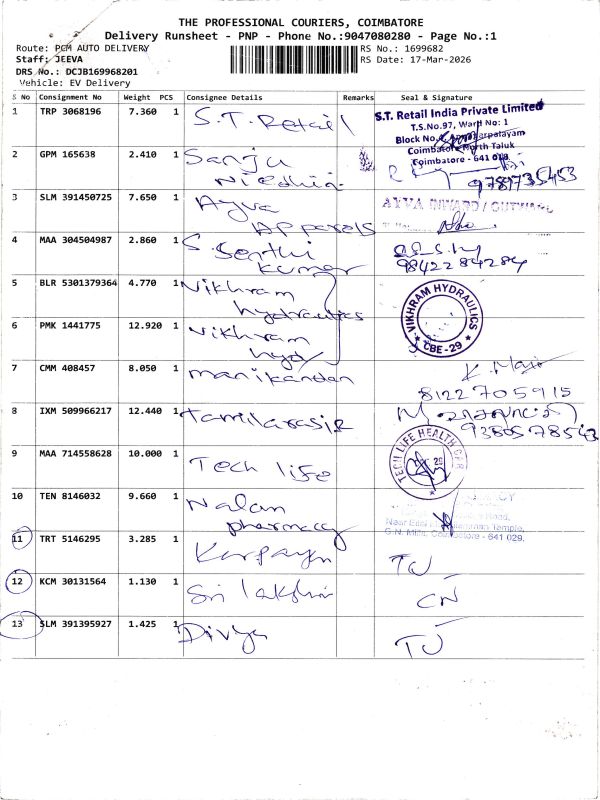 THE PROFESSIONAL COURIERS, COIMBATORE
Delivery Runsheet - PNP - Phone No.:9047080280 - Page No.:1
Route: PCM AUTO DELIVERY RS No.: 1699682
Staff: JEEVA RS Date: 17-Mar-2026
DRS No.: DCJB169968201
Vehicle: EV Delivery
S No Consignment No Weight PCS Consignee Details Remarks Seal & Signature
1 TRP 3068196 7.360 1 S.T. Retail
S.T. Retail India Private Limited
T.S.No.97, Ward No: 1
Block No.
Coimbatore North Taluk
Coimbatore - 641
2 GPM 165638 2.410 1 Sanju
9789735453
3 SLM 391450725 7.650 1 Ayva
Apparels
AYVA INWARD / OUTWARD
4 MAA 304504987 2.860 1 S. Senthi
kumar
9842284284
5 BLR 5301379364 4.770 1 Vikhram
hydraulics
VIKHRAM HYDRAULICS
CBE-29
6 PMK 1441775 12.920 1 Vikhram
hyd
7 CMM 408457 8.050 1 manikandan
K. Mani
8122705915
8 IXM 509966217 12.440 1 Tamilarasi
9380578543
9 MAA 714558628 10.000 1 Tech life
TECH LIFE HEALTH CARE
10 TEN 8146032 9.660 1 Nalan
pharmacy
Temple,
G.N. Mills, Coimbatore - 641 029.
11 TRT 5146295 3.285 1
12 KCM 30131564 1.130 1 Sri lakshmi
CN
13 SLM 391395927 1.425 1 Divya